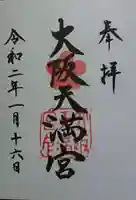 奉拝
大阪天満宮
令和二年一月十六日